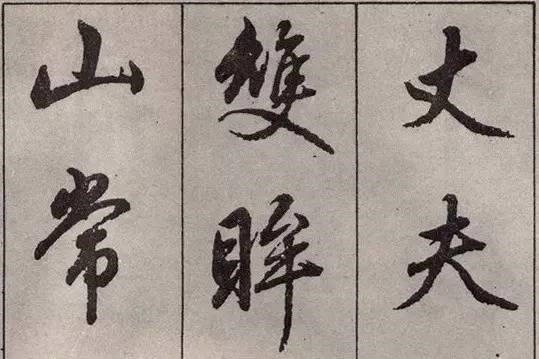 丈夫
雙眸
山常